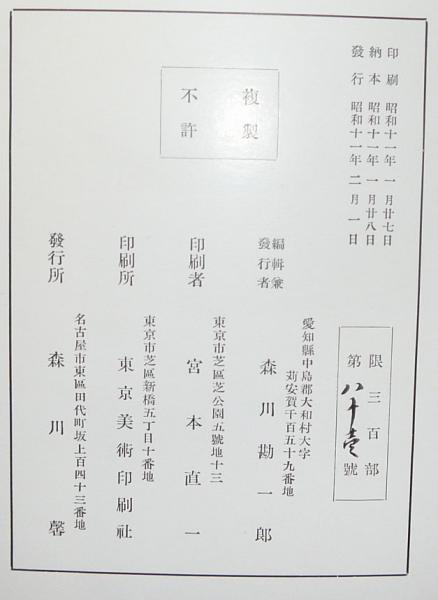 印刷 昭和十一年一月廿七日
納本 昭和十一年一月廿八日
發行 昭和十一年二月一日
限三百部
第八十壹號
複製
不許
編輯兼
發行者
愛知縣中島郡大和村大字
苅安賀千百五十九番地
森川勘一郎
印刷者
東京市芝區芝公園五號地十三
宮本直一
印刷所
東京市芝區新橋五丁目十番地
東京美術印刷社
發行所
名古屋市東區田代町坂上百四十三番地
森川馨